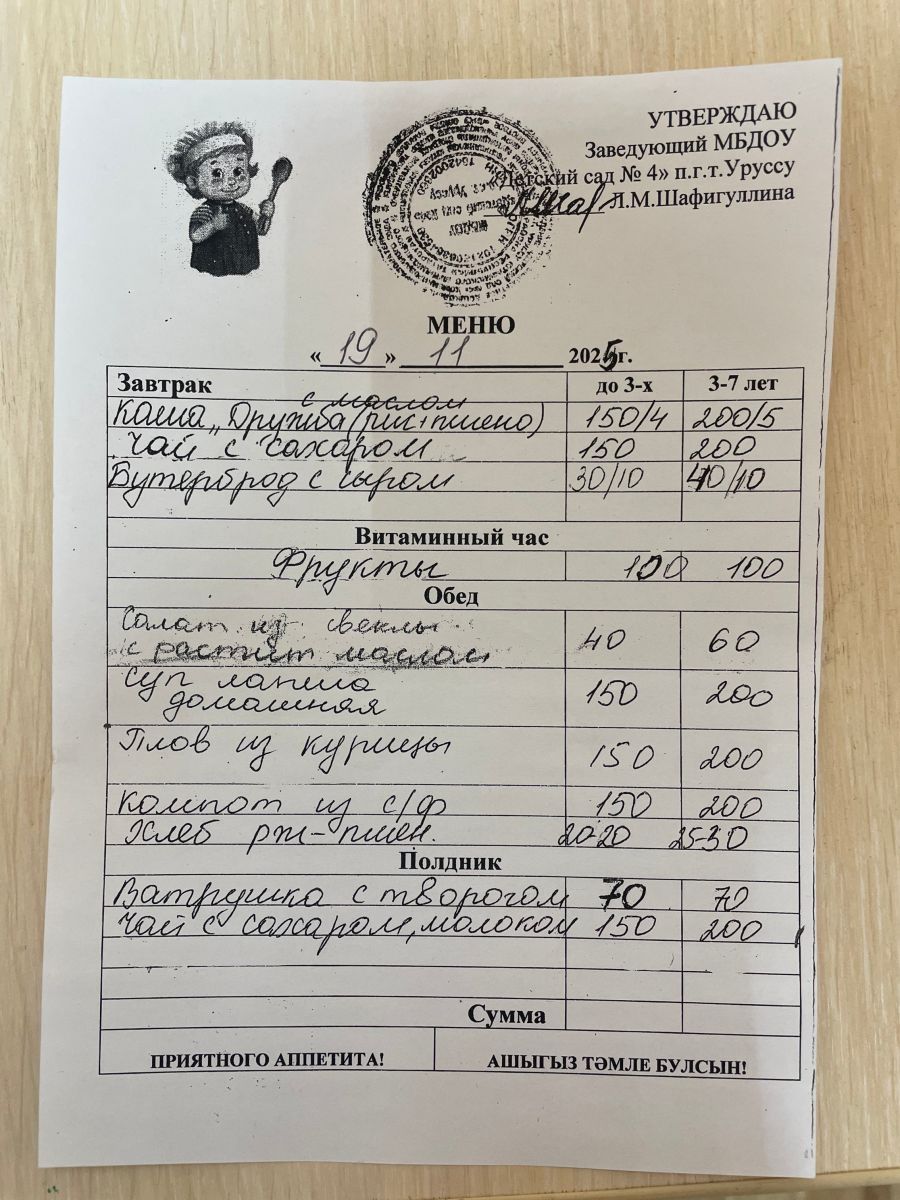 УТВЕРЖДАЮ
Заведующий МБДОУ
«Детский сад № 4» п.г.т.Уруссу
Л.М.Шафигуллина
МЕНЮ
« 19 » 11 2025г.
Завтрак до 3-х 3-7 лет
с маслом
Каша „Дружба (рис+пшено) 150/4 200/5
Чай с сахаром 150 200
Бутерброд с сыром 30/10 40/10
Витаминный час
Фрукты 100 100
Обед
Салат из свеклы
с растит маслом 40 60
Суп лапша
домашняя 150 200
Плов из курицы 150 200
Компот из с/ф 150 200
Хлеб рж-пшен. 20-20 25-30
Полдник
Ватрушка с творогом 70 70
Чай с сахаром, молоком 150 200
Сумма
ПРИЯТНОГО АППЕТИТА! АШЫГЫЗ ТӘМЛЕ БУЛСЫН!